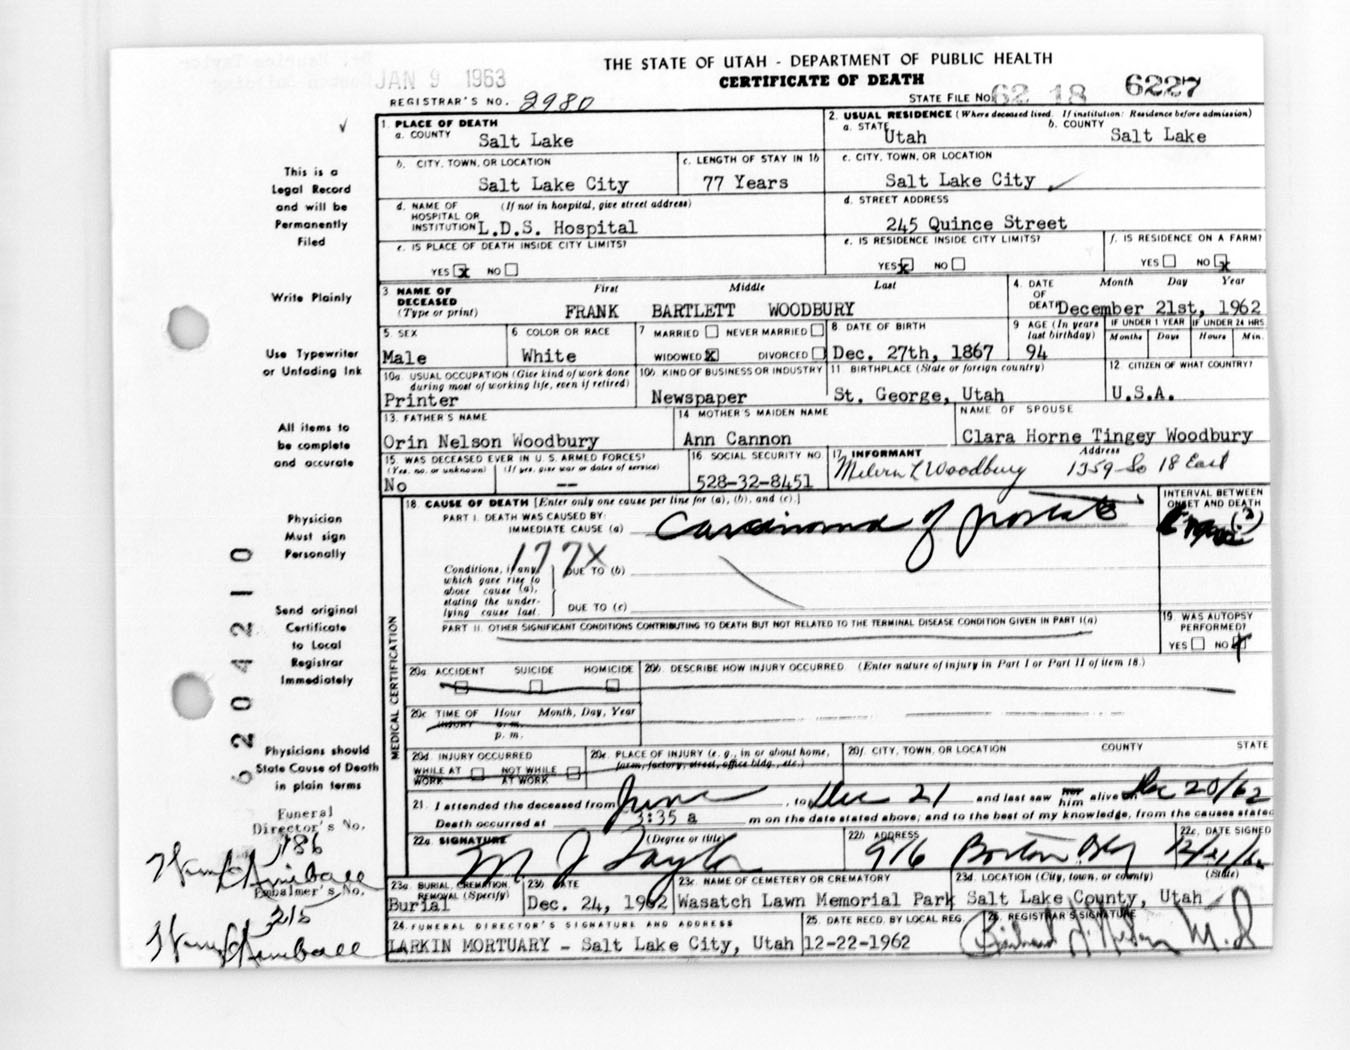 THE STATE OF UTAH - DEPARTMENT OF PUBLIC HEALTH
JAN 9 1963
CERTIFICATE OF DEATH
REGISTRAR'S NO. 2980
STATE FILE NO. 62 18 6227
This is a
Legal Record
and will be
Permanently
Filed
Write Plainly
Use Typewriter
or Unfading Ink
All items to
be complete
and accurate
Physician
Must sign
Personally
Send original
Certificate
to Local
Registrar
Immediately
Physicians should
State Cause of Death
in plain terms
Funeral
Director's No.
186
Embalmer's No.
315
620 4210
1. PLACE OF DEATH
a. COUNTY
Salt Lake
2. USUAL RESIDENCE (Where deceased lived. If institution: Residence before admission)
a. STATE Utah
b. COUNTY Salt Lake
b. CITY, TOWN, OR LOCATION
Salt Lake City
c. LENGTH OF STAY IN 1b
77 Years
c. CITY, TOWN, OR LOCATION
Salt Lake City
d. NAME OF HOSPITAL OR INSTITUTION (If not in hospital, give street address)
L.D.S. Hospital
d. STREET ADDRESS
245 Quince Street
e. IS PLACE OF DEATH INSIDE CITY LIMITS?
YES x NO
e. IS RESIDENCE INSIDE CITY LIMITS?
YES x NO
f. IS RESIDENCE ON A FARM?
YES NO x
3 NAME OF DECEASED (Type or print)
First Middle Last
FRANK BARTLETT WOODBURY
4. DATE OF DEATH Month Day Year
December 21st, 1962
5 SEX
Male
6 COLOR OR RACE
White
7 MARRIED NEVER MARRIED
WIDOWED X DIVORCED
8 DATE OF BIRTH
Dec. 27th, 1867
9 AGE (In years last birthday)
94
IF UNDER 1 YEAR IF UNDER 24 HRS
Months Days Hours Min.
10a. USUAL OCCUPATION (Give kind of work done during most of working life, even if retired)
Printer
10b KIND OF BUSINESS OR INDUSTRY
Newspaper
11 BIRTHPLACE (State or foreign country)
St. George, Utah
12 CITIZEN OF WHAT COUNTRY?
U.S.A.
13. FATHER'S NAME
Orin Nelson Woodbury
14 MOTHER'S MAIDEN NAME
Ann Cannon
NAME OF SPOUSE
Clara Horne Tingey Woodbury
15 WAS DECEASED EVER IN U.S. ARMED FORCES?
(Yes, no, or unknown) (If yes, give war or dates of service)
No --
16 SOCIAL SECURITY NO.
528-32-8451
17 INFORMANT Address
Melvin T Woodbury 1359 So 18 East
18 CAUSE OF DEATH [Enter only one cause per line for (a), (b), and (c).]
INTERVAL BETWEEN ONSET AND DEATH
PART I. DEATH WAS CAUSED BY:
IMMEDIATE CAUSE (a) Carcinoma of prostate
177X
Conditions, if any, which gave rise to above cause (a), stating the underlying cause last.
DUE TO (b)
DUE TO (c)
PART II. OTHER SIGNIFICANT CONDITIONS CONTRIBUTING TO DEATH BUT NOT RELATED TO THE TERMINAL DISEASE CONDITION GIVEN IN PART I(a)
19 WAS AUTOPSY PERFORMED?
YES NO
MEDICAL CERTIFICATION
20a. ACCIDENT SUICIDE HOMICIDE
20b. DESCRIBE HOW INJURY OCCURRED. (Enter nature of injury in Part I or Part II of item 18.)
20c TIME OF INJURY Hour Month, Day, Year
a. m.
p. m.
20d. INJURY OCCURRED
WHILE AT WORK NOT WHILE AT WORK
20e. PLACE OF INJURY (e. g., in or about home, farm, factory, street, office bldg., etc.)
20f. CITY, TOWN, OR LOCATION COUNTY STATE
21. I attended the deceased from June, to Dec 21 and last saw her him alive on Dec 20/62
Death occurred at 3:35 a m on the date stated above; and to the best of my knowledge, from the causes stated
22a SIGNATURE (Degree or title)
M J Taylor
22b ADDRESS
916 Boston Bldg
22c. DATE SIGNED
12/21/62
23a. BURIAL, CREMATION, REMOVAL (Specify)
Burial
23b. DATE
Dec. 24, 1962
23c NAME OF CEMETERY OR CREMATORY
Wasatch Lawn Memorial Park
23d. LOCATION (City, town, or county) (State)
Salt Lake County, Utah
24. FUNERAL DIRECTOR'S SIGNATURE AND ADDRESS
LARKIN MORTUARY - Salt Lake City, Utah
25. DATE RECD. BY LOCAL REG.
12-22-1962
26. REGISTRAR'S SIGNATURE